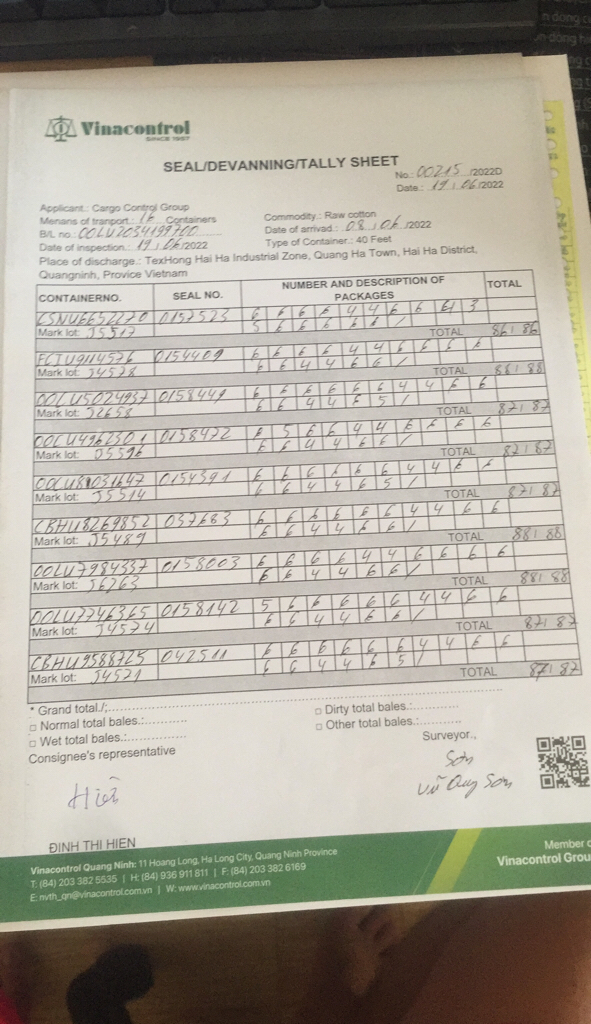 Vinacontrol
SINCE 1957
SEAL/DEVANNING/TALLY SHEET
No.: 00215 /2022D
Date.: 19 / 06/2022
Applicant.: Cargo Control Group
Menans of tranport.: 16 Containers
Commodity.: Raw cotton
B/L no.: OOLU2034199700
Date of arrivad.: 08 / 06 /2022
Date of inspection.: 19 / 06/2022
Type of Container.: 40 Feet
Place of discharge.: TexHong Hai Ha Industrial Zone, Quang Ha Town, Hai Ha District,
Quangninh, Provice Vietnam
CONTAINERNO. SEAL NO. NUMBER AND DESCRIPTION OF PACKAGES TOTAL
CSNU6652270 0157523
Mark lot: J5517 TOTAL 86/86
0154409 6 6 6 6 4 4 6 6 6 6
Mark lot: J4578 6 6 4 4 6 6 / TOTAL 88/88
OOLU5024937 0158449 6 6 6 6 6 6 4 4 6 6
Mark lot: J2658 6 6 4 4 6 5 / TOTAL 87/87
0158472 6 5 6 6 4 4 6 6 6 6
Mark lot: J5596 6 6 4 4 6 6 / TOTAL 87/87
0154391 6 6 6 6 6 6 4 4 6 6
Mark lot: J5514 6 6 4 4 6 5 / TOTAL 87/87
CBHU8269852 037683 6 6 6 6 6 6 4 4 6 6
Mark lot: J5489 6 6 4 4 6 6 / TOTAL 88/88
OOLU7984337 0158003 6 6 6 6 4 4 6 6 6 6
Mark lot: J6263 6 6 4 4 6 6 / TOTAL 88/88
OOLU7746365 0158142 5 6 6 6 6 6 4 4 6 6
Mark lot: J4574 6 6 4 4 6 6 / TOTAL 87/87
CBHU9588725 042511 6 6 6 6 6 6 4 4 6 6
Mark lot: J4521 6 6 4 4 6 5 / TOTAL 87/87
* Grand total./;
□ Normal total bales.:
□ Dirty total bales.:
□ Wet total bales.:
□ Other total bales.:
Consignee's representative
Surveyor.,
Hiền
Sơn
Vũ Quý Sơn
ĐINH THI HIEN
Vinacontrol Quang Ninh: 11 Hoang Long, Ha Long City, Quang Ninh Province
T: (84) 203 382 5535 | H: (84) 936 911 811 | F: (84) 203 382 6169
E: nvth_qn@vinacontrol.com.vn | W: www.vinacontrol.com.vn
Member
Vinacontrol Grou